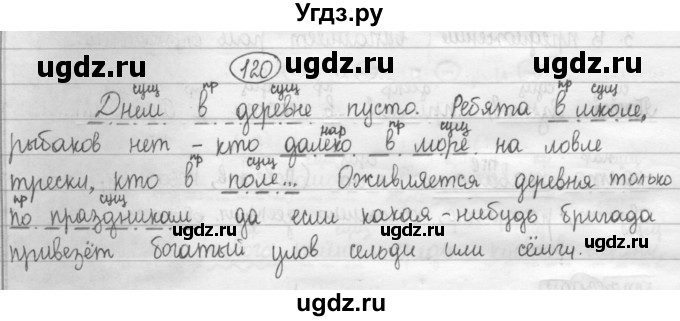 Угдз.ру
120
ugdz.ru ugdz.ru ugdz.ru
сущ пр сущ пр сущ
Днем в деревне пусто. Ребята в школе,
нар пр сущ
рыбаков нет - кто далеко в море на ловле
пр сущ
трески, кто в поле... Оживляется деревня только
ugdz.ru ugdz.ru
пр сущ
по праздникам да если какая-нибудь бригада
ugdz.ru ugdz.ru ugdz.ru
привезёт богатый улов сельди или сёмги.
ugdz.ru